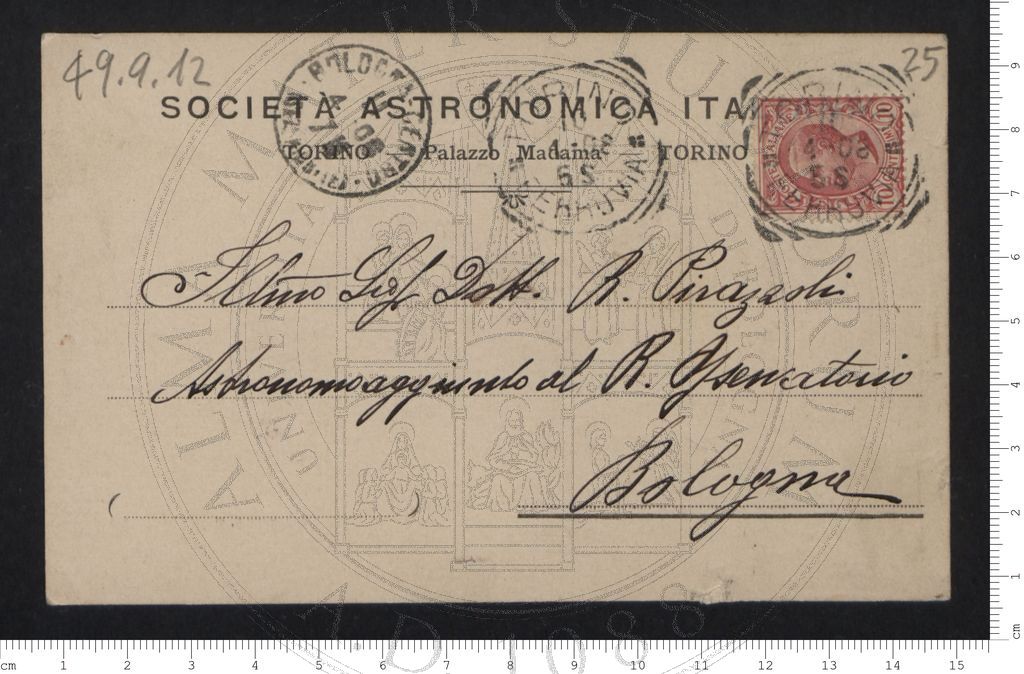 49.9.12
25
SOCIETÀ ASTRONOMICA ITA
TORINO Palazzo Madama TORINO
BOLOGNA CENTRO
TORINO
4-08
5 S
FERROVIA
10
Illmo Sig Dott. R. Pirazzoli
Astronomo aggiunto al R. Osservatorio
Bologna
ALMA MATER STUDIORUM
A.D. 1088
cm 1 2 3 4 5 6 7 8 9 10 11 12 13 14 15
9 8 7 6 5 4 3 2 1 cm